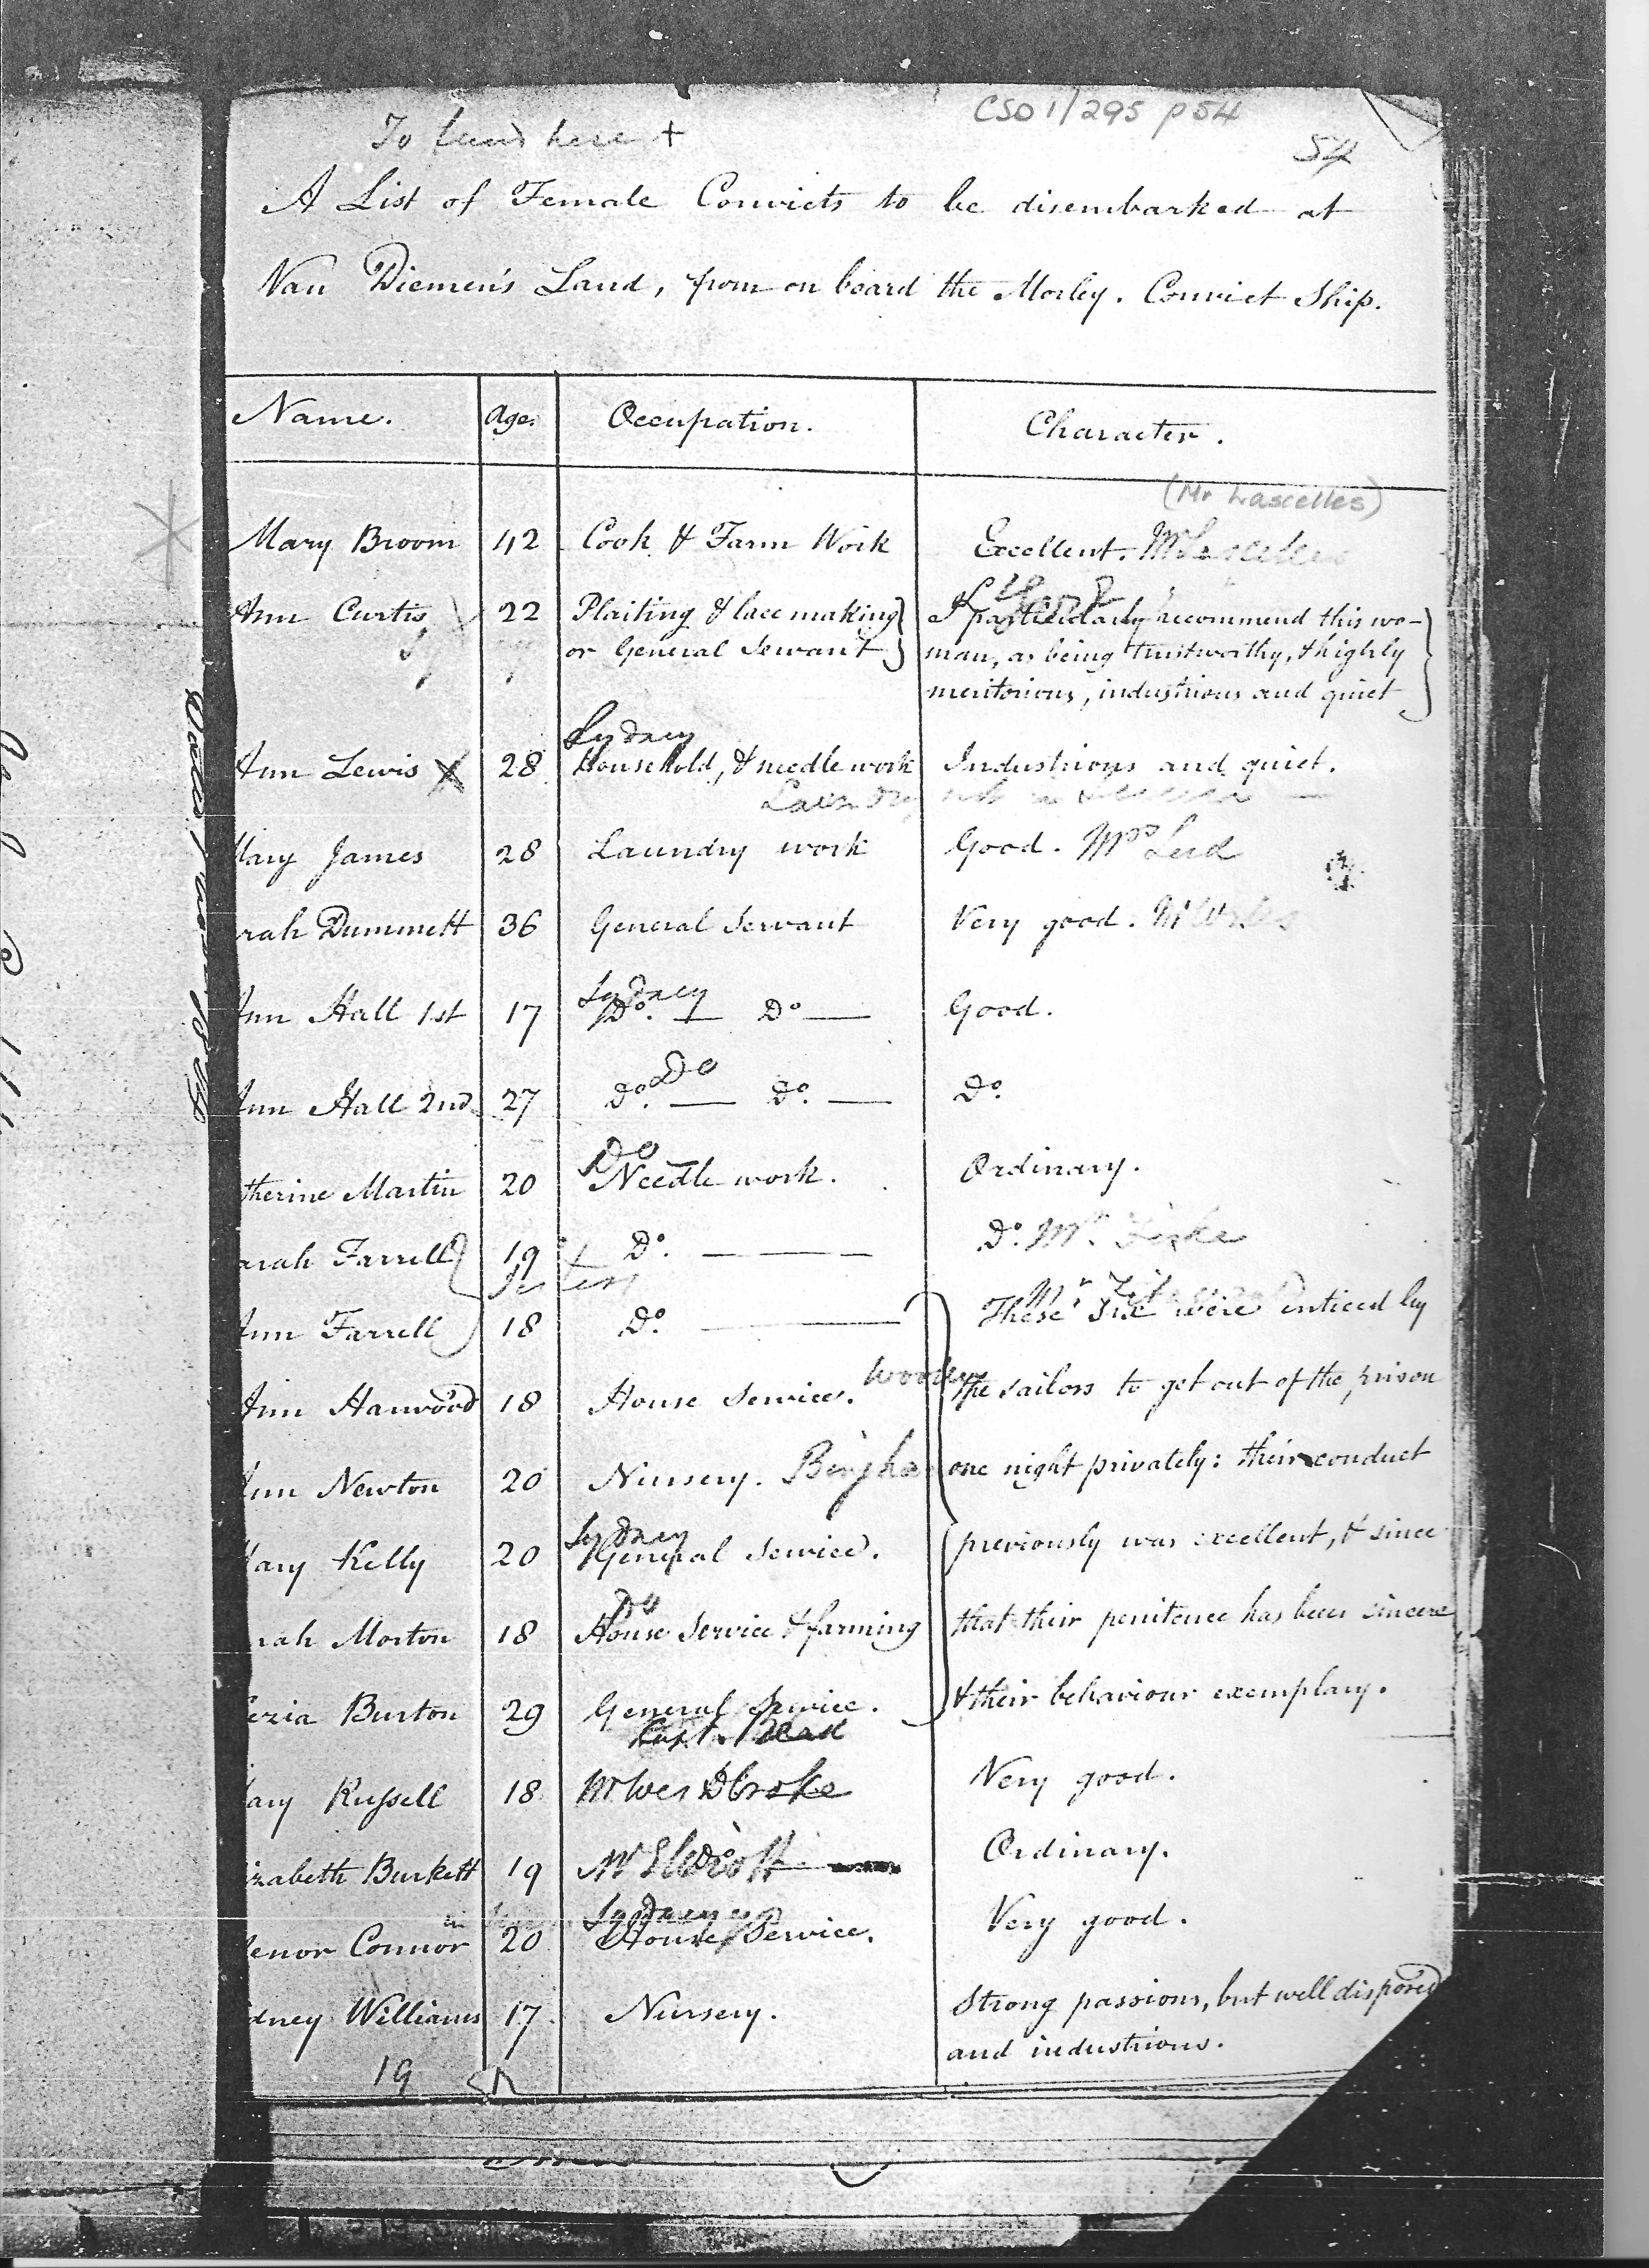 CSO 1/295 p 54
To land here +
54
A List of Female Convicts to be disembarked at
Van Diemen's Land, from on board the Morley. Convict Ship.
Name. Age. Occupation. Character.
(Mr Lascelles)
Mary Broom 42 Cook & Farm Work Excellent. Mr Lascelles
Ann Curtis 22 Plaiting & lace making I particularly recommend this wo-
or General Servant man, as being trustworthy, & highly
meritorious, industrious and quiet
Sydney
Ann Lewis X 28 Household, & needle work Industrious and quiet.
Laundry
Mary James 28 Laundry work Good. Mrs Lord
rah Dummett 36 General Servant Very good. Mr
Sydney
Ann Hall 1st 17 Do. — Do — Good.
Do
Ann Hall 2nd 27 Do. — Do. — Do.
Do
therine Martin 20 Needle work. Ordinary.
arah Farrell 19 Do. — — Do. Mr
Sisters
Ann Farrell 18 Do. — These six were enticed by
Ann Harwood 18 House Service. the sailors to get out of the prison
Ann Newton 20 Nursery. Bingham one night privately: their conduct
Sydney
Mary Kelly 20 General Service. previously was excellent, & since
Do
rah Morton 18 House Service & farming that their penitence has been sincere
ezia Burton 29 General Service. & their behaviour exemplary.
Capt. Read
ary Russell 18 Very good.
izabeth Burkett 19 Ordinary.
Sydney
lenor Connor 20 House Service. Very good.
dney Williams 17 Nursery. Strong passions, but well disposed
and industrious.
19